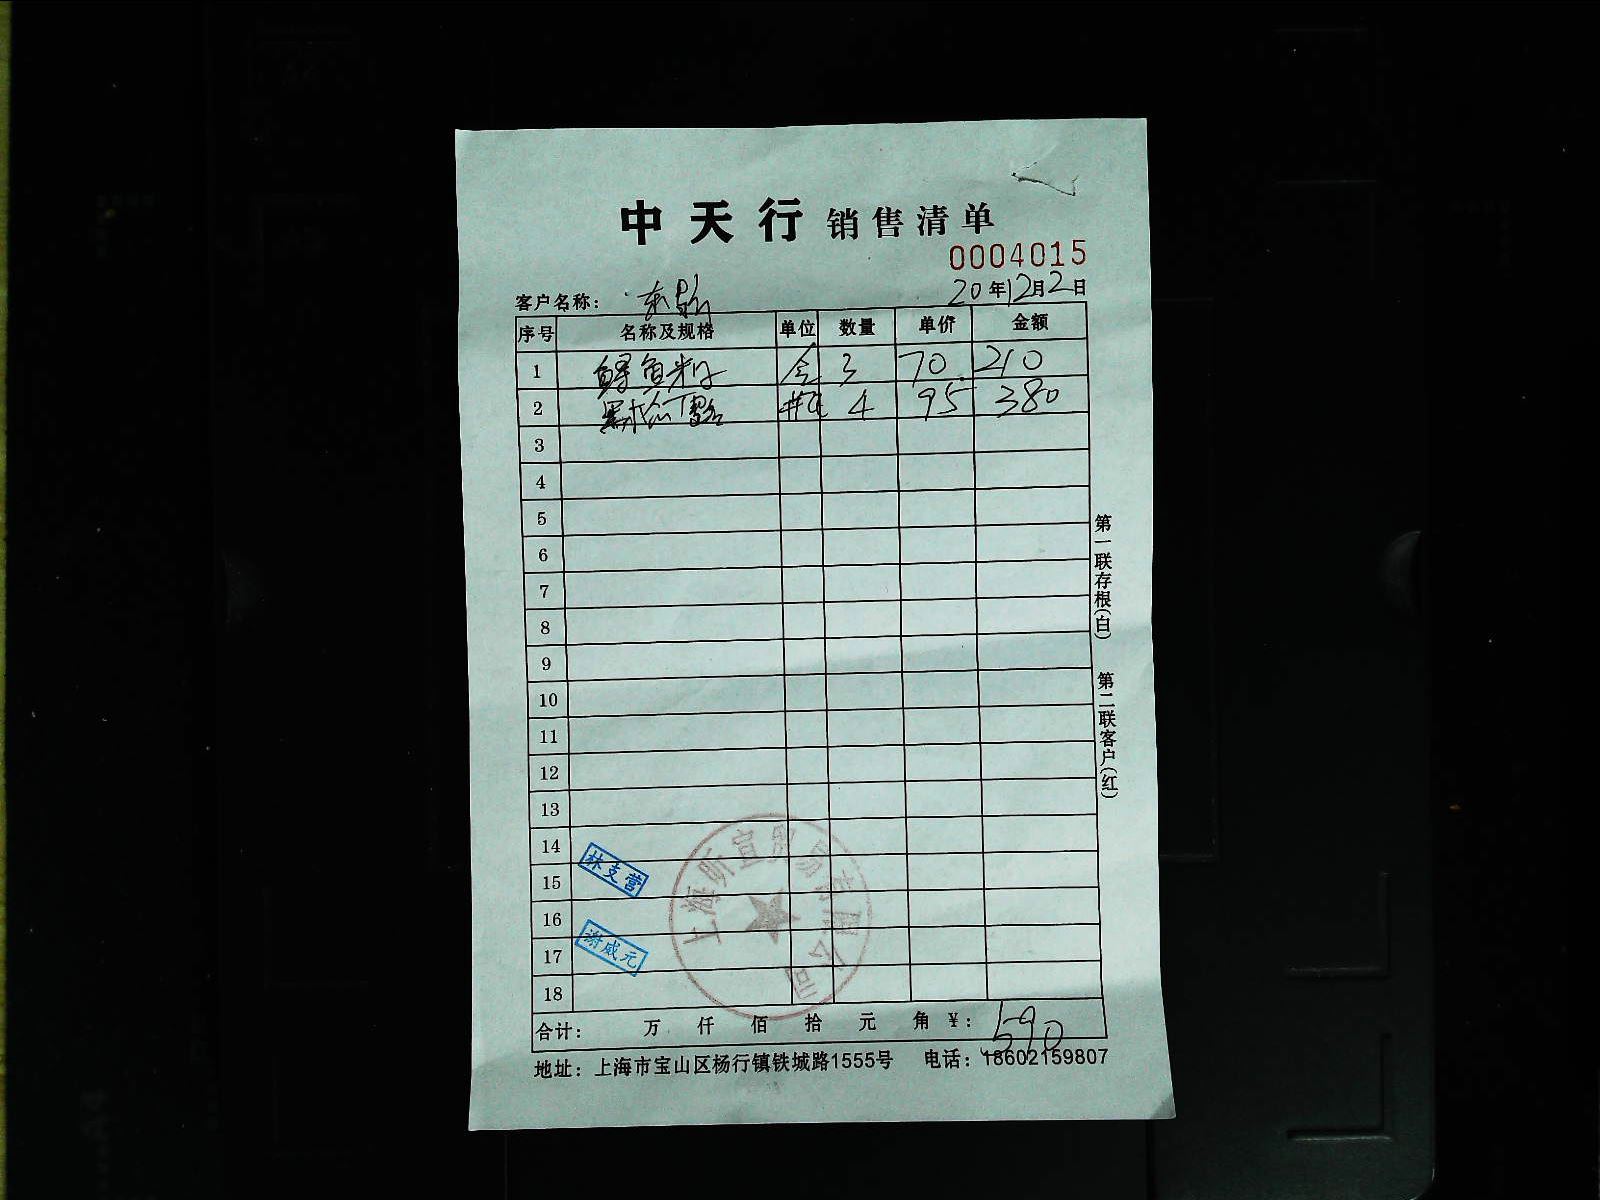 中天行 销售清单
0004015
客户名称： 东
20年12月2日
序号 名称及规格 单位 数量 单价 金额
1 鲟鱼籽 盒 3 70 210
2 黑松露 瓶 4 95 380
3
4
5
6
7
8
9
10
11
12
13
14
15
16
17
18
林支营
谢威元
上海昕宣贸易有限公司
合计： 万 仟 佰 拾 元 角 ¥：590
地址：上海市宝山区杨行镇铁城路1555号 电话：18602159807
第一联存根(白)
第二联客户(红)